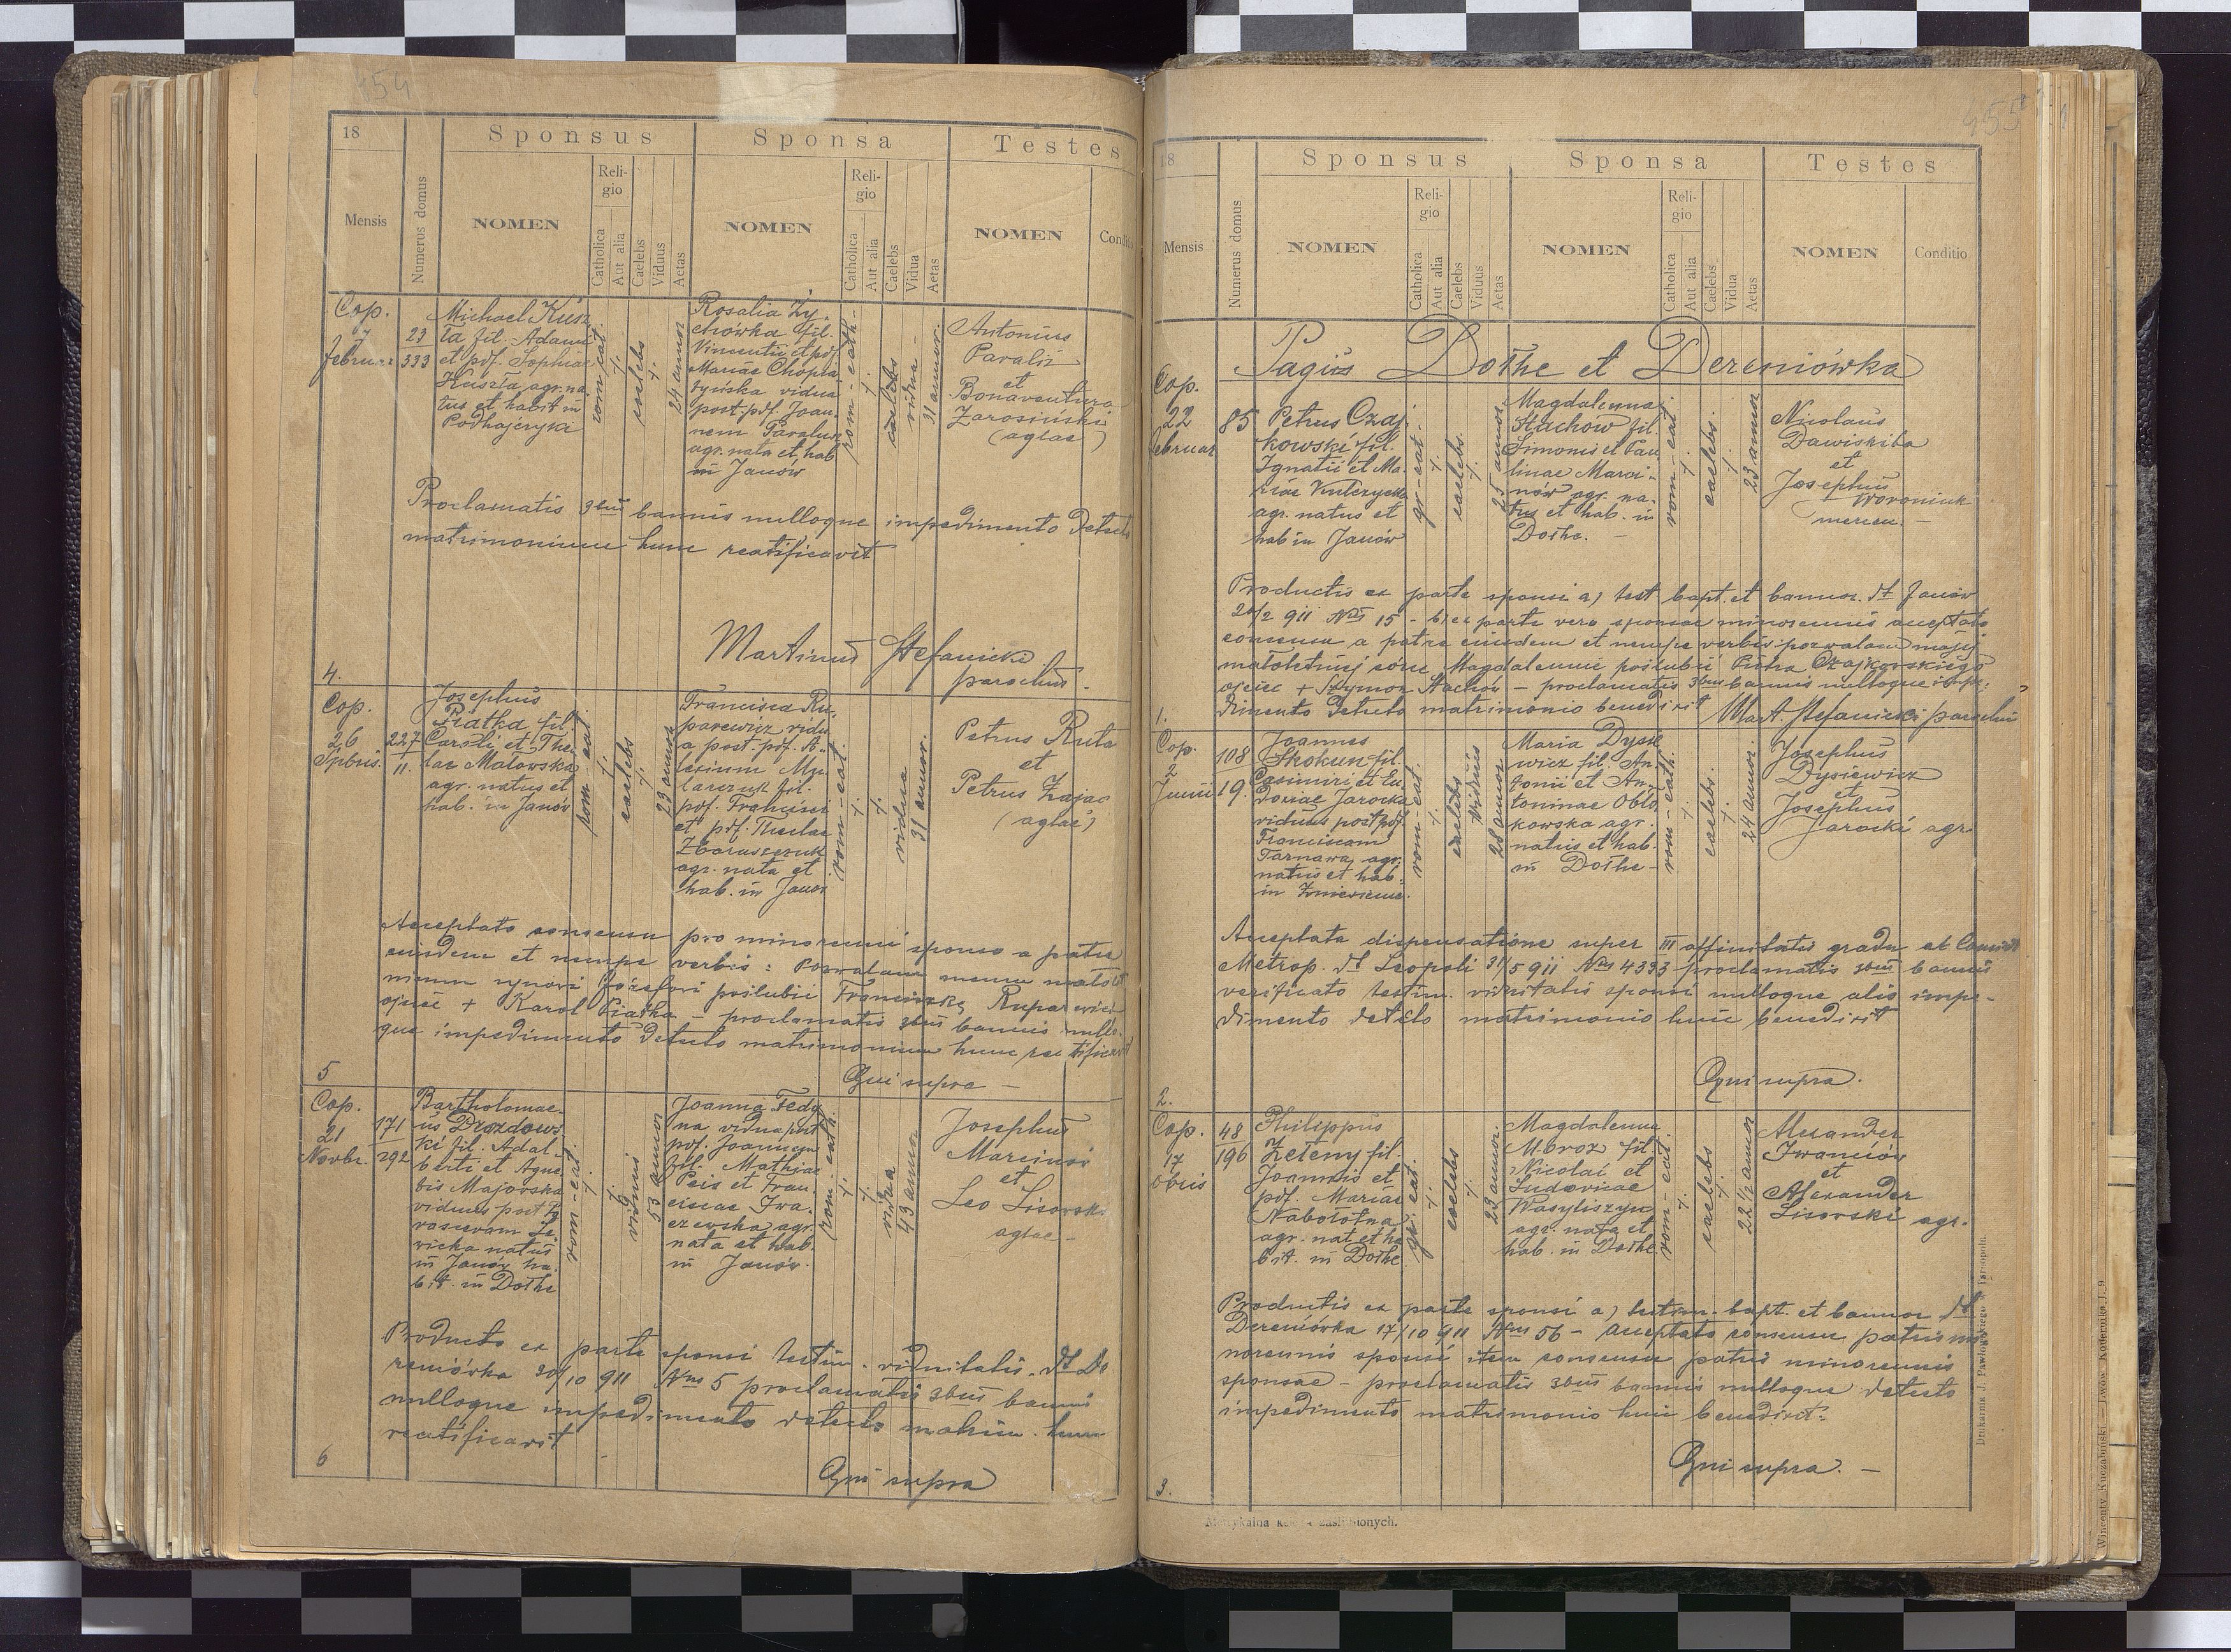 454
18
Sponsus
Sponsa
Testes
Mensis
Numerus domus
NOMEN
Religio
Catholica
Aut alia
Caelebs
Viduus
Aetas
NOMEN
Religio
Catholica
Aut alia
Caelebs
Vidua
Aetas
NOMEN
Cop.
7
23
333
Michael Kusz
ta fil. Adami
et pdf. Sophiae
Kuszta agr. na
tus et habit in
Podhajczyki
rom-cat.
caelebs
24 annor
Rosalia Zy-
chówka fil.
Vincentii et pdf.
Mariae
vidua
post. pdf. Joan-
nem
agr. nata et hab
in Janów
rom-cath-
vidua -
31 annor.
Antonius
et
Bonaventura
Zarosiński
(aglae)
Proclamatis 3bus bannis nulloque impedimento detecto
matrimonium hunc reatificavit
Martinus Stefanicki
parochus.
4.
Cop.
26
227
11.
Josephus
Piatka fil.
Caroli et The
clae Malowska
agr. natus et
hab. in Janów
rom-cat.
caelebs
23 annor
Francisca Ru-
parewicz vidu
a post. pdf. A-
lexium My
larczuk fil.
pdf. Francisci
et pdf. Theclae
agr. nata et
hab. in Janow
rom-cat.
vidua
31 annor.
Petrus Ruta
et
Petrus Zając
(aglae)
Acceptato consensu pro minorenni sponso a patre
eiusdem et nempe verbis: Pozwalam memu malolet
niemu synowi Józefowi poślubić Franciszkę Ruparewicz
ojciec + Karol Piatka - proclamatis 3bus bannis nullo-
que impedimento detecto matrimonium hunc reatificavit
Qui supra -
5
Cop.
21
Novbr.
171
292
Bartholomae-
us Drozdows
ki fil. Adal-
berti et Agne
tis Majowska
viduus post
natus
in Janów ha-
bit. in Dołhe
rom-cat.
viduus
53 annor
Joanna Fedy
na vidua post
pdf. Joannem
fil. Mathiae
Peis et Fran-
ciscae Iwa-
czewska agr.
nata et hab.
in Janów.
rom-cath.
vidua
43 annor.
Josephus
Marciniw
et
Leo Lisowski
aglae -
Producto ex parte sponsi testim. viduitatis. dt De
reniówka 30/10 911 Nrus 5 proclamatis 3bus bannis
nulloque impedimento detecto matrim. hunc
reatificavit
Qui supra
6
455
18
Sponsus
Sponsa
Testes
Mensis
Numerus domus
NOMEN
Religio
Catholica
Aut alia
Caelebs
Viduus
Aetas
NOMEN
Religio
Catholica
Aut alia
Caelebs
Vidua
Aetas
NOMEN
Conditio
Pagus Dołhe et Dereniówka
Cop.
22
Februar
85
Petrus Czaj
kowski fil.
Ignatii et Ma-
riae Kulczycka
agr. natus et
hab in Janów
gr-cat.
caelebs.
25 annor.
Magdalenna
Stachow fil.
Simonis et Pau
linae Marci-
nów agr. na-
tus et hab. in
Dołhe. -
rom-cat
caelebs.
23 annor
Nicolaus
Dawiskiba
et
Josephus
Woroniuk
mercen. -
Productis ex parte sponsi a) test bapt. et bannor. dt Janów
20/2 911 Nrus 15 - b) ex parte vero sponsae minorennis acceptato
consensu a patre eiusdem et nempe verbis: pozwalam mojej
małoletniej córce Magdalennie poślubić Piotra Czajkowskiego
ojciec + Szymon Stachów - proclamatis 3bus bannis nulloque impe-
dimento detecto matrimonio benedixit Mart. Stefanicki parochus
1.
Cop.
2
Junii
108
19.
Joannes
Skokun fil.
Casimiri et Eu
dociae Jarocka
viduus post pdf.
Franciscam
Tarnawa agr.
natus et hab.
in
rom-cat.
caelebs
viduus
28 annor
Maria Dysie
wicz fil. An-
tonii et An-
toninae Obło
kowska agr.
natus et hab.
in Dołhe -
rom-cath.
caelebs.
24 annor.
Josephus
Dysiewicz
et
Josephus
Jarocki agr.
Acceptata dispensatione super III affinitatis gradu ab Consist
Metrop. dt Leopoli 31/5 911 Nrus 4333 proclamatis 3bus bannis
verificato testim. viduitatis sponsi nulloque alio impe-
dimento detecto matrimonio huic benedixit
Qui supra.
2.
Cop.
17
8bris
48
196
Philippus
Zeleny fil.
Joannis et
pdf. Mariae
Nabołotna
agr. nat et ha
bit. in Dołhe
gr. cat.
caelebs
23 annor.
Magdalenna
Mroz fil.
Nicolai et
Ludovicae
Wasyliszyn
agr. nata et
hab. in Dołhe
rom-cat.
caelebs
22 1/2 annor
Alexander
Iwanciów
et
Alexander
Lisowski agr.
Productis ex parte sponsi a) testim. bapt. et bannor dt
Dereniówka 17/10 911 Nrus 56 - acceptato consensu patris mi
norennis sponsi item consensu patris minorennis
sponsae - proclamatis 3bus bannis nulloque detecto
impedimento matrimonio huic benedixit.
Qui supra. -
3.
Drukarnia J. Pawłowskiego Tarnopolu.
Wincenty Kuczabiński — Lwów Kopernika l. 9